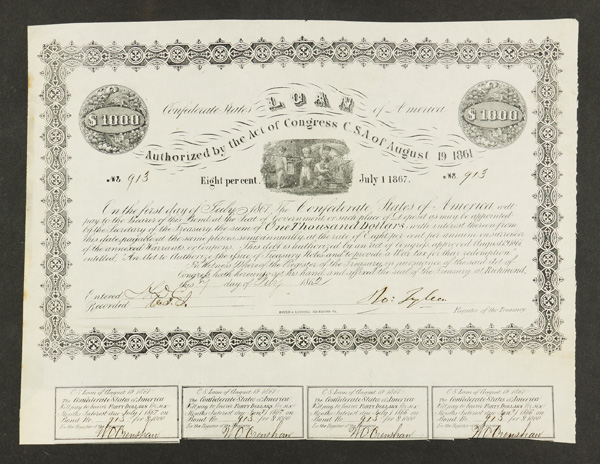 $1000
Confederate States LOAN of America
$1000
Authorized by the Act of Congress C.S.A. of August 19 1861
No. 913
Eight per cent.
July 1 1867.
No. 913
On the first day of July 1867 The Confederate States of America will
pay to the Bearer of this Bond at the Seat of Government or such place of Deposit as may be appointed
by the Secretary of the Treasury the sum of One Thousand Dollars with interest thereon from
this date payable at the same place semi annually at the rate of Eight per cent per annum on surrender
of the annexed Warrants or Coupons. This debt is authorized by an act of Congress approved August 19 1861
entitled "An Act to Authorize the issue of Treasury Notes and to provide a War Tax for their redemption"
In Witness Whereof the Register of the Treasury in pursuance of the said Act of
Congress hath hereunto set his hand and affixed the seal of the Treasury at Richmond,
this day of 1862
Entered
Recorded
Ro: Tyler
Register of the Treasury
C.S. Loan of August 19 1861
The Confederate States of America
Will pay to bearer FORTY DOLLARS for six
Months Interest due July 1 1867 on
Bond No. 913 for $1000
For the Register of the
C.S. Loan of August 19 1861
The Confederate States of America
Will pay to bearer FORTY DOLLARS for six
Months Interest due Jany 1 1867 on
Bond No. 913 for $1000
For the Register of the
C.S. Loan of August 19 1861
The Confederate States of America
Will pay to bearer FORTY DOLLARS for six
Months Interest due July 1 1866 on
Bond No. 913 for $1000
For the Register of the
C.S. Loan of August 19 1861
The Confederate States of America
Will pay to bearer FORTY DOLLARS for six
Months Interest due Jany 1 1866 on
Bond No. 913 for $1000
For the Register of the